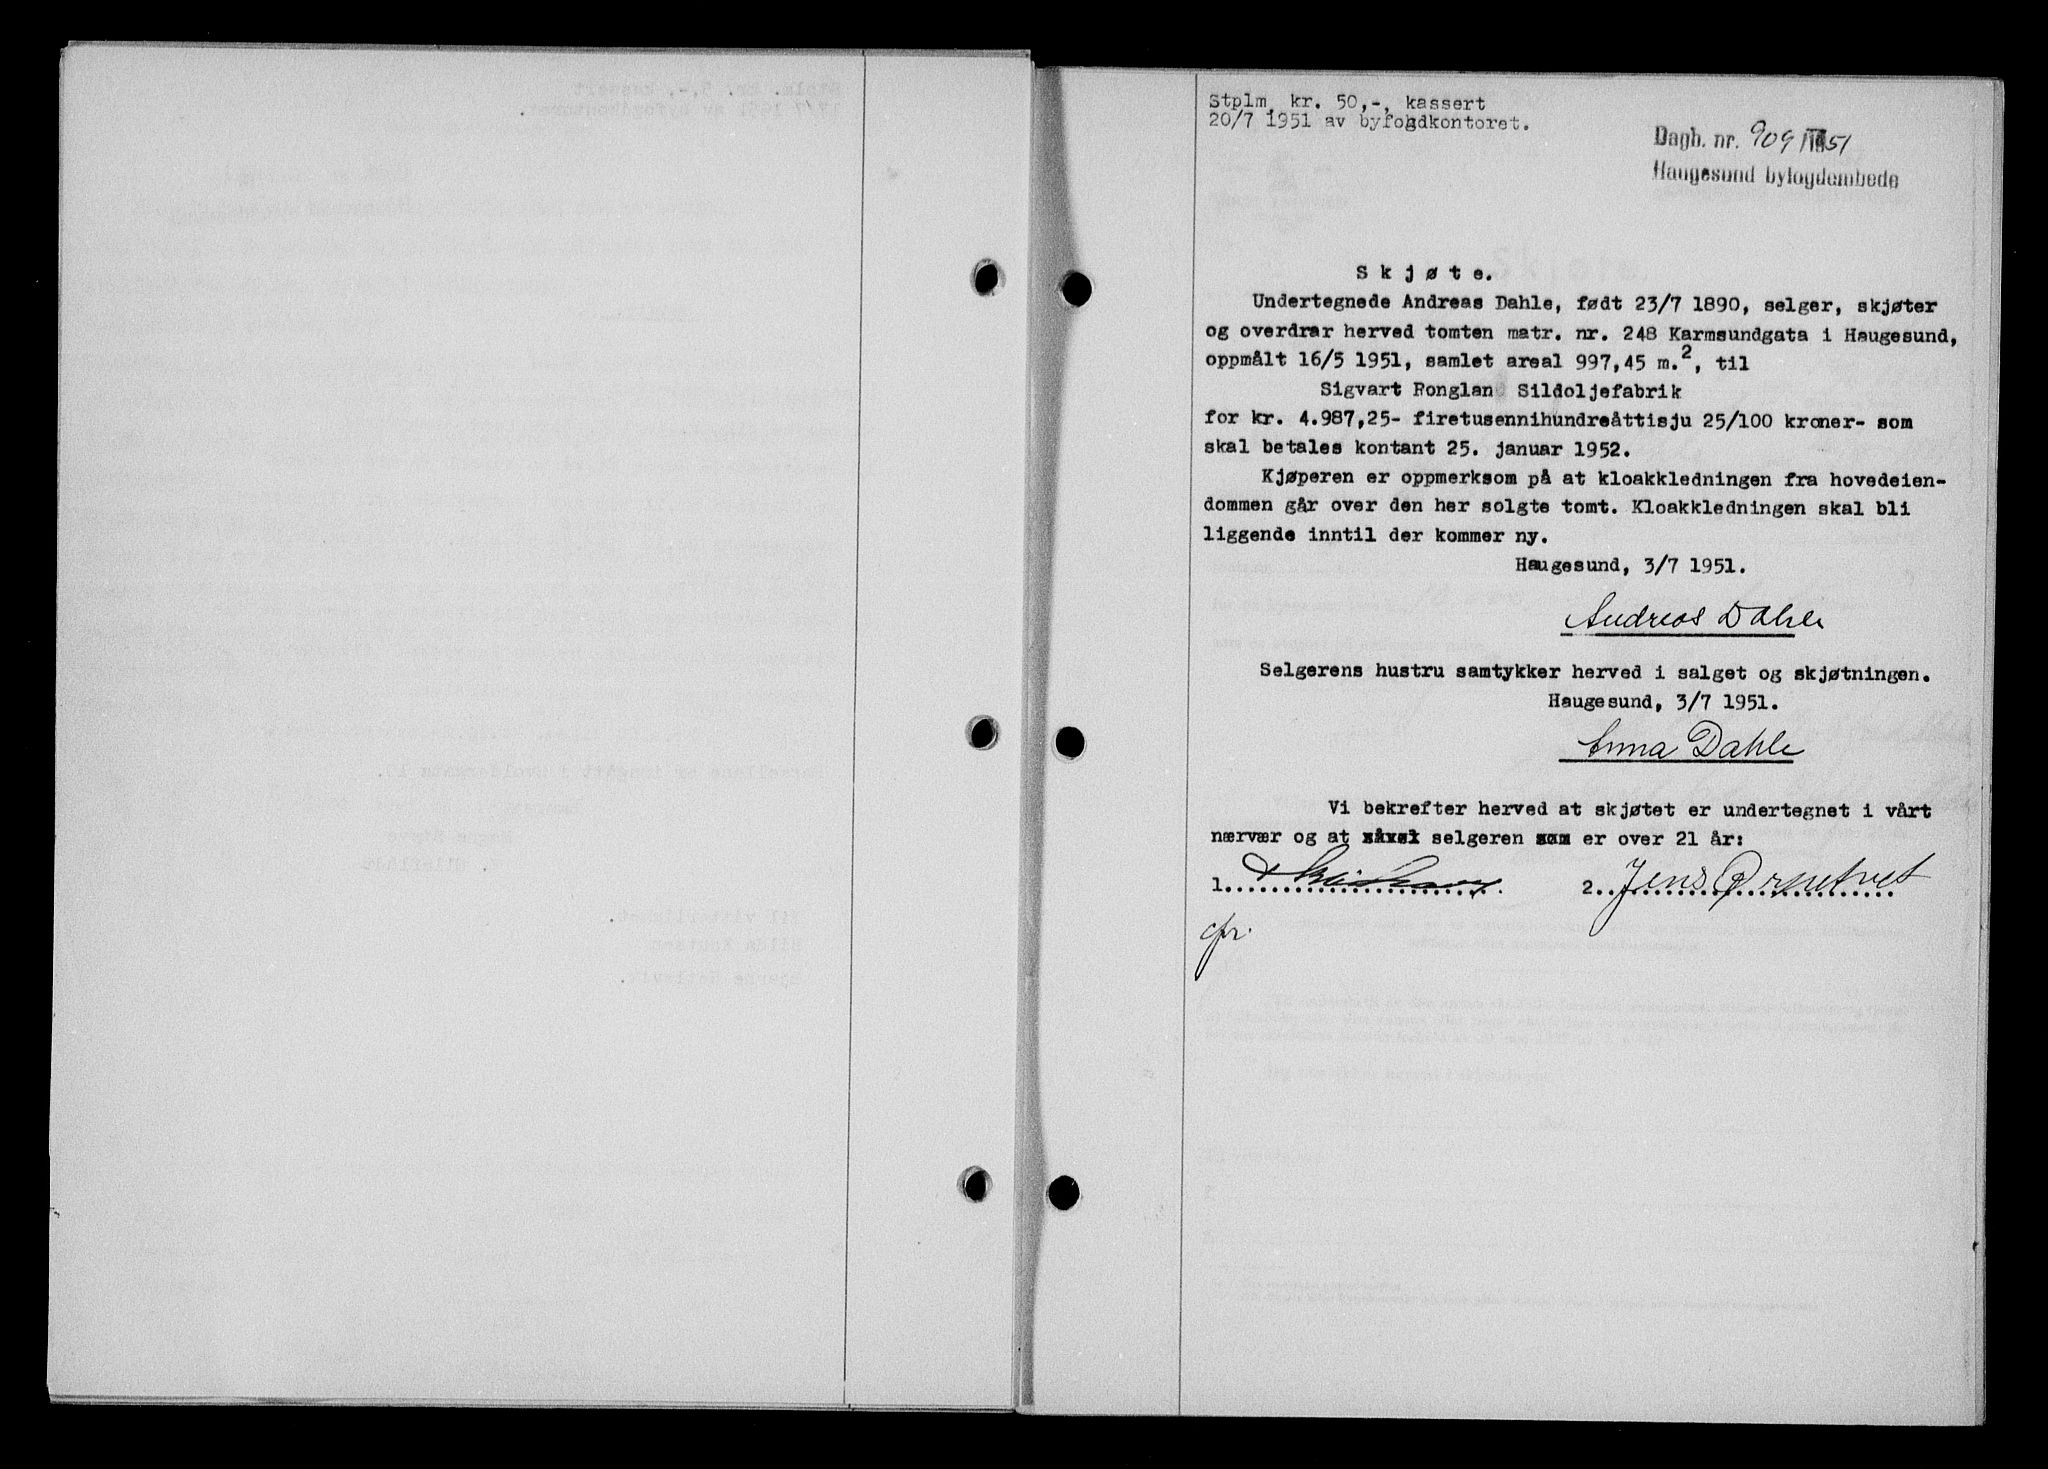 Stplm. kr. 50,-, kassert
20/7 1951 av byfogdkontoret.
Dagb. nr. 909/1951
Haugesund byfogdembede
Skjøte.
Undertegnede Andreas Dahle, født 23/7 1890, selger, skjøter
og overdrar herved tomten matr. nr. 248 Karmsundgata i Haugesund,
oppmålt 16/5 1951, samlet areal 997,45 m.2, til
Sigvart Rongland Sildoljefabrik
for kr. 4.987,25- firetusennihundreåttisju 25/100 kroner- som
skal betales kontant 25. januar 1952.
Kjøperen er oppmerksom på at kloakkledningen fra hovedeien-
dommen går over den her solgte tomt. Kloakkledningen skal bli
liggende inntil der kommer ny.
Haugesund, 3/7 1951.
Andreas Dahle
Selgerens hustru samtykker herved i salget og skjøtningen.
Haugesund, 3/7 1951.
Anna Dahle
Vi bekrefter herved at skjøtet er undertegnet i vårt
nærvær og at såvel selgeren som er over 21 år:
1. 2. Jens Ørpetvet
cfr.